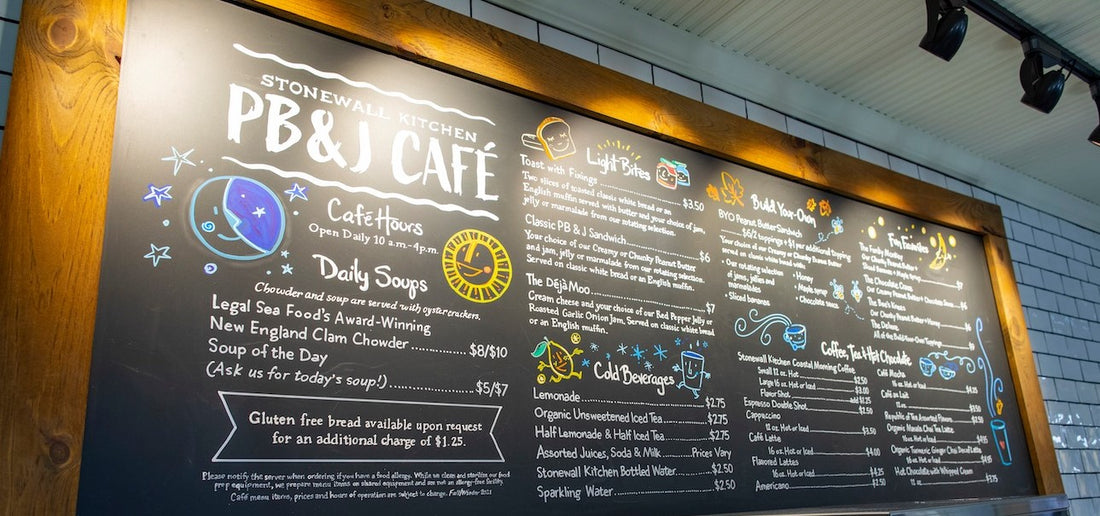 STONEWALL KITCHEN
PB&J CAFÉ
Café Hours
Open Daily 10 a.m.-4p.m.
Daily Soups
Chowder and soup are served with oyster crackers.
Legal Sea Food's Award-Winning
New England Clam Chowder ............... $8/$10
Soup of the Day
(Ask us for today's soup!) ..................... $5/$7
Gluten free bread available upon request
for an additional charge of $1.25.
Please notify the server when ordering if you have a food allergy. While we clean and sterilize our food
prep equipment, we prepare menu items on shared equipment and are not an allergy-free facility.
Café menu items, prices and hours of operation are subject to change. Fall/Winter 2021
Light Bites
Toast with Fixings ............... $3.50
Two slices of toasted classic white bread or an
English muffin served with butter and your choice of jam,
jelly or marmalade from our rotating selection.
Classic PB & J Sandwich ............... $6
Your choice of our Creamy or Chunky Peanut Butter
and jam, jelly or marmalade from our rotating selection.
Served on classic white bread or an English muffin.
The Déjà Moo ............... $7
Cream cheese and your choice of our Red Pepper Jelly or
Roasted Garlic Onion Jam. Served on classic white bread
or an English muffin.
Cold Beverages
Lemonade ............... $2.75
Organic Unsweetened Iced Tea ............... $2.75
Half Lemonade & Half Iced Tea ............... $2.75
Assorted Juices, Soda & Milk ............... Prices Vary
Stonewall Kitchen Bottled Water ............... $2.50
Sparkling Water ............... $2.50
Build Your Own
BYO Peanut Butter Sandwich
$6/2 toppings + $1 per additional topping
Your choice of our Creamy or Chunky Peanut Butter
served on classic white bread or an English muffin.
• Our rotating selection
of jams, jellies and
marmalades
• Sliced bananas
• Honey
• Maple syrup
• Chocolate sauce
Fun Favorites
The Funky Monkey
Our Chunky Peanut Butter +
Sliced Bananas + Maple Syrup
The Chocolate Crave
Our Creamy Peanut Butter + Chocolate Sauce
The Bee's Knees
Our Chunky Peanut Butter + Honey
The Deluxe
Coffee, Tea & Hot Chocolate
Stonewall Kitchen Coastal Morning Coffee
Small 12 oz. Hot $2.50
Large 16 oz. Hot or Iced $3.00
Flavor Shot add $1.25
Espresso Double Shot $2.50
Cappuccino
12 oz. Hot or Iced $3.50
Café Latte
16 oz. Hot or Iced $4.00
Flavored Lattes
16 oz. Hot or Iced $4.25
Americano $2.50
Café Mocha
16 oz. Hot or Iced $4.25
Café au Lait
12 oz. $3.50
Republic of Tea Assorted Flavors $2.50
Organic Masala Chai Tea Latte
16 oz. Hot or Iced
Organic Turmeric Ginger Chai Decaf Latte
16 oz. Hot or Iced
Hot Chocolate with Whipped Cream
12 oz. $3.75